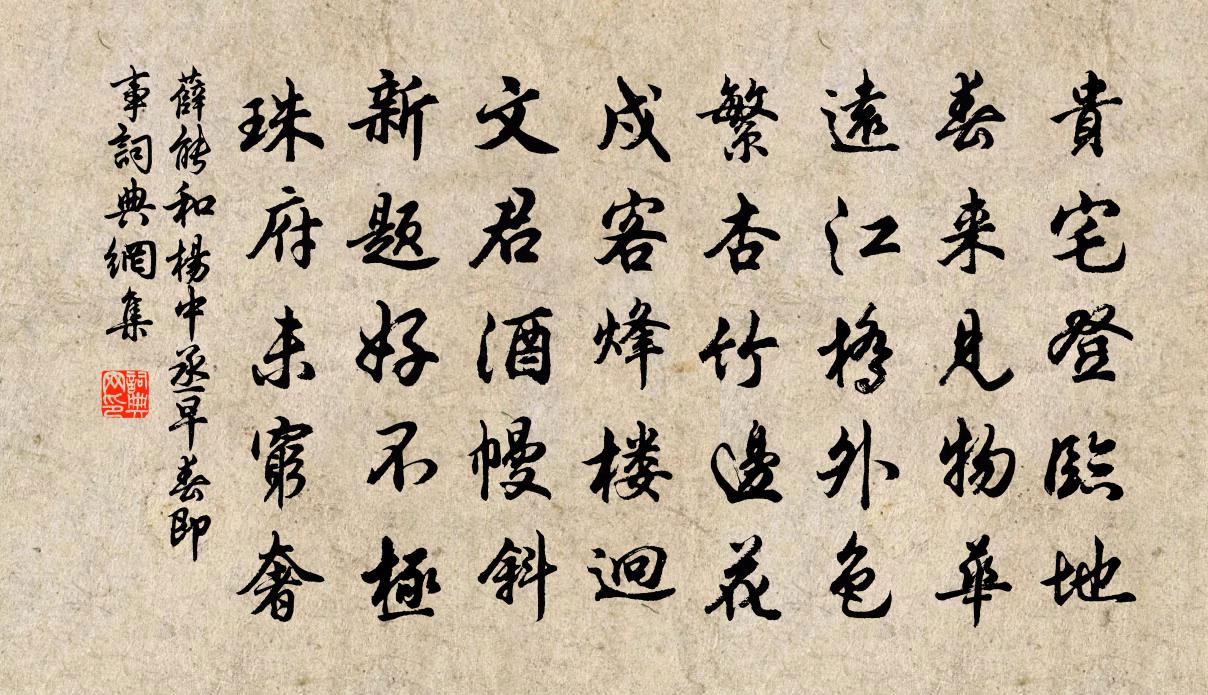 貴宅登臨地
春來見物華
遠江橋外色
繁杏竹邊花
戍客烽楼迥
文君酒幔斜
新题好不極
珠府未窮奢
薛能和楊中丞早春即
事詞典網集
詞典网印